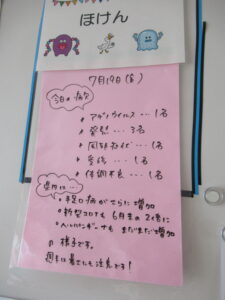 ほけん
7月19日(金)
今日の病欠
• アデノウイルス … 1名
• 発熱 … 3名
• 1名
• 1名
• 体調不良 … 1名
• 手足口病がさらに増加
• 新型コロナも 6月末の2倍に
• ヘルパンギーナも まだまだ増加
の 様子です。
週末は暑さにも注意です!